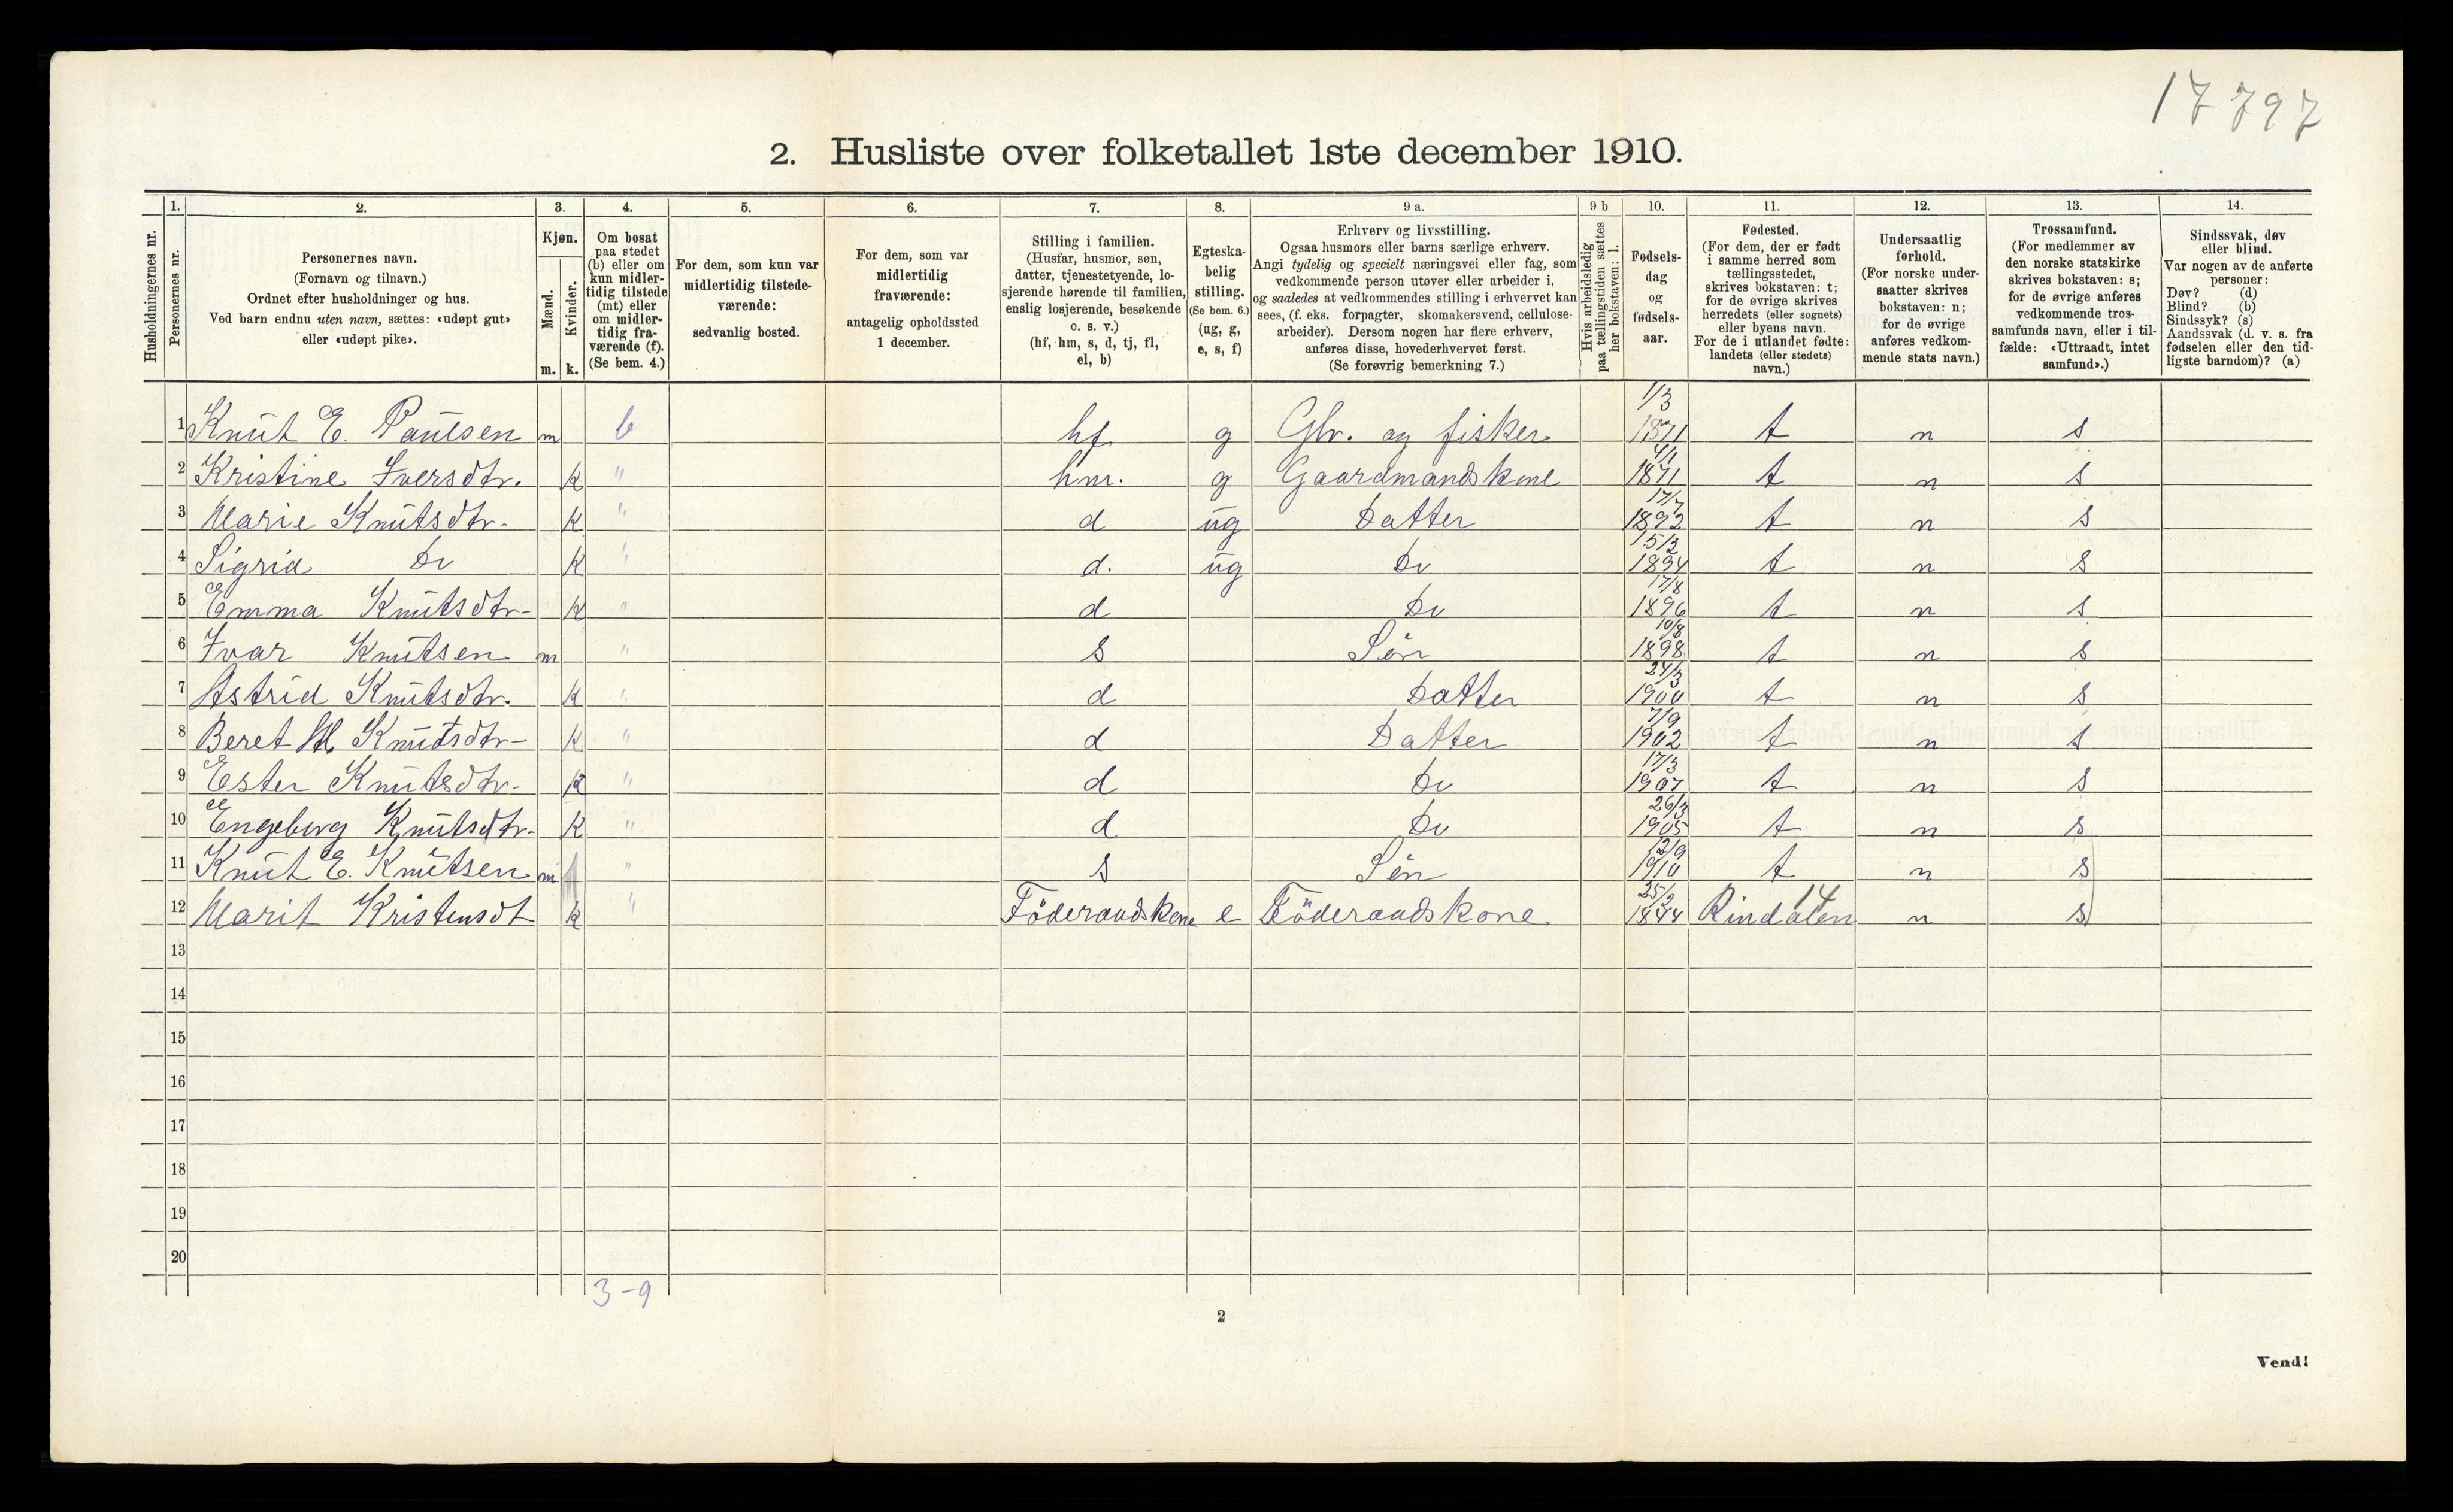 17797
2. Husliste over folketallet 1ste december 1910.
Husholdningernes nr.
1.
Personernes nr.
2.
Personernes navn.
(Fornavn og tilnavn.)
Ordnet efter husholdninger og hus.
Ved barn endnu uten navn, sættes: «udøpt gut»
eller «udøpt pike».
3.
Kjøn.
Mænd.
Kvinder.
m. k.
4.
Om bosat
paa stedet
(b) eller om
kun midler-
tidig tilstede
(mt) eller
om midler-
tidig fra-
værende (f).
(Se bem. 4.)
5.
For dem, som kun var
midlertidig tilstede-
værende:
sedvanlig bosted.
6.
For dem, som var
midlertidig
fraværende:
antagelig opholdssted
1 december.
7.
Stilling i familien.
(Husfar, husmor, søn,
datter, tjenestetyende, lo-
sjerende hørende til familien,
enslig losjerende, besøkende
o. s. v.)
(hf, hm, s, d, tj, fl,
el, b)
8.
Egteska-
belig
stilling.
(Se bem. 6.)
(ug, g,
e, s, f)
9 a.
Erhverv og livsstilling.
Ogsaa husmors eller barns særlige erhverv.
Angi tydelig og specielt næringsvei eller fag, som
vedkommende person utøver eller arbeider i,
og saaledes at vedkommendes stilling i erhvervet kan
sees, (f. eks. forpagter, skomakersvend, cellulose-
arbeider). Dersom nogen har flere erhverv,
anføres disse, hovederhvervet først.
(Se forøvrig bemerkning 7.)
9 b
Hvis arbeidsledig
paa tællingstiden sættes
her bokstaven: l.
10.
Fødsels-
dag
og
fødsels-
aar.
11.
Fødested.
(For dem, der er født
i samme herred som
tællingsstedet,
skrives bokstaven: t;
for de øvrige skrives
herredets (eller sognets)
eller byens navn.
For de i utlandet fødte:
landets (eller stedets)
navn.)
12.
Undersaatlig
forhold.
(For norske under-
saatter skrives
bokstaven: n;
for de øvrige
anføres vedkom-
mende stats navn.)
13.
Trossamfund.
(For medlemmer av
den norske statskirke
skrives bokstaven: s;
for de øvrige anføres
vedkommende tros-
samfunds navn, eller i til-
fælde: «Uttraadt, intet
samfund».)
14.
Sindssvak, døv
eller blind.
Var nogen av de anførte
personer:
Døv? (d)
Blind? (b)
Sindssyk? (s)
Aandssvak (d. v. s. fra
fødselen eller den tid-
ligste barndom)? (a)
1 Knut E. Paulsen m b hf g Gbr. og fisker 1/3 1871 t n s
2 Kristine Iversdtr. k " hm. g Gaardmandskone 4/1 1871 t n s
3 Marie Knutsdtr- k " d ug Datter 17/7 1892 t n s
4 Sigrid Do k " d. ug Do 15/2 1894 t n s
5 Emma Knutsdtr- k " d Do 17/8 1896 t n s
6 Ivar Knutsen m " s Sön 10/8 1898 t n s
7 Astrid Knutsdtr. k " d Datter 24/3 1900 t n s
8 Beret M. Knutsdtr- k " d Datter 7/9 1902 t n s
9 Ester Knutsdtr- k " d Do 17/3 1907 t n s
10 Engeborg Knutsdtr- k " d Do 26/3 1905 t n s
11 Knut E. Knutsen m " s Sön 12/9 1910 t n s
12 Marit Kristensdt k " Föderaadskone e Föderaadskone 25/2 1844 Rindalen 14 n s
13
14
15
16
17
18
19
20
3-9
2
Vend!